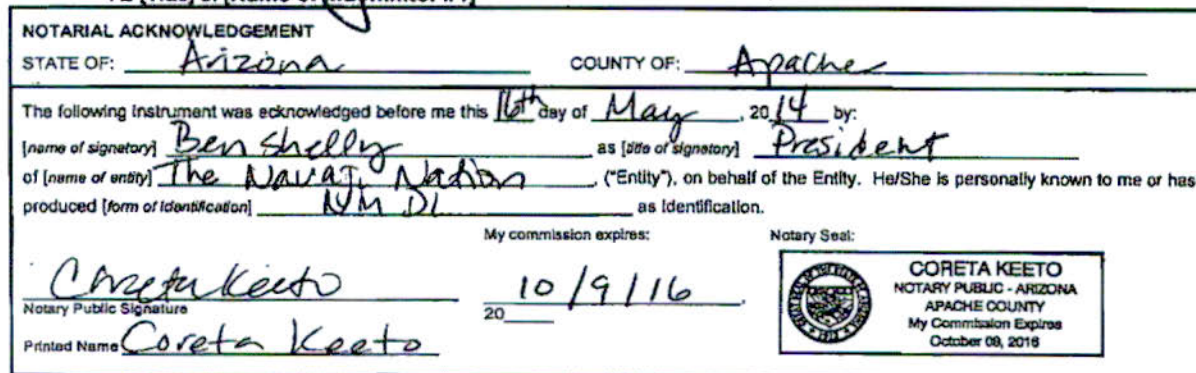 NOTARIAL ACKNOWLEDGEMENT
STATE OF: Arizona COUNTY OF: Apache
The following instrument was acknowledged before me this 16th day of May, 2014 by:
[name of signatory] Ben Shelly as [title of signatory] President
of [name of entity] The Navajo Nation, ("Entity"), on behalf of the Entity. He/She is personally known to me or has
produced [form of identification] NM DL as identification.
My commission expires: Notary Seal:
Coreta Keeto 10/9/16
Notary Public Signature 20
Printed Name Coreta Keeto
CORETA KEETO
NOTARY PUBLIC - ARIZONA
APACHE COUNTY
My Commission Expires
October 09, 2016